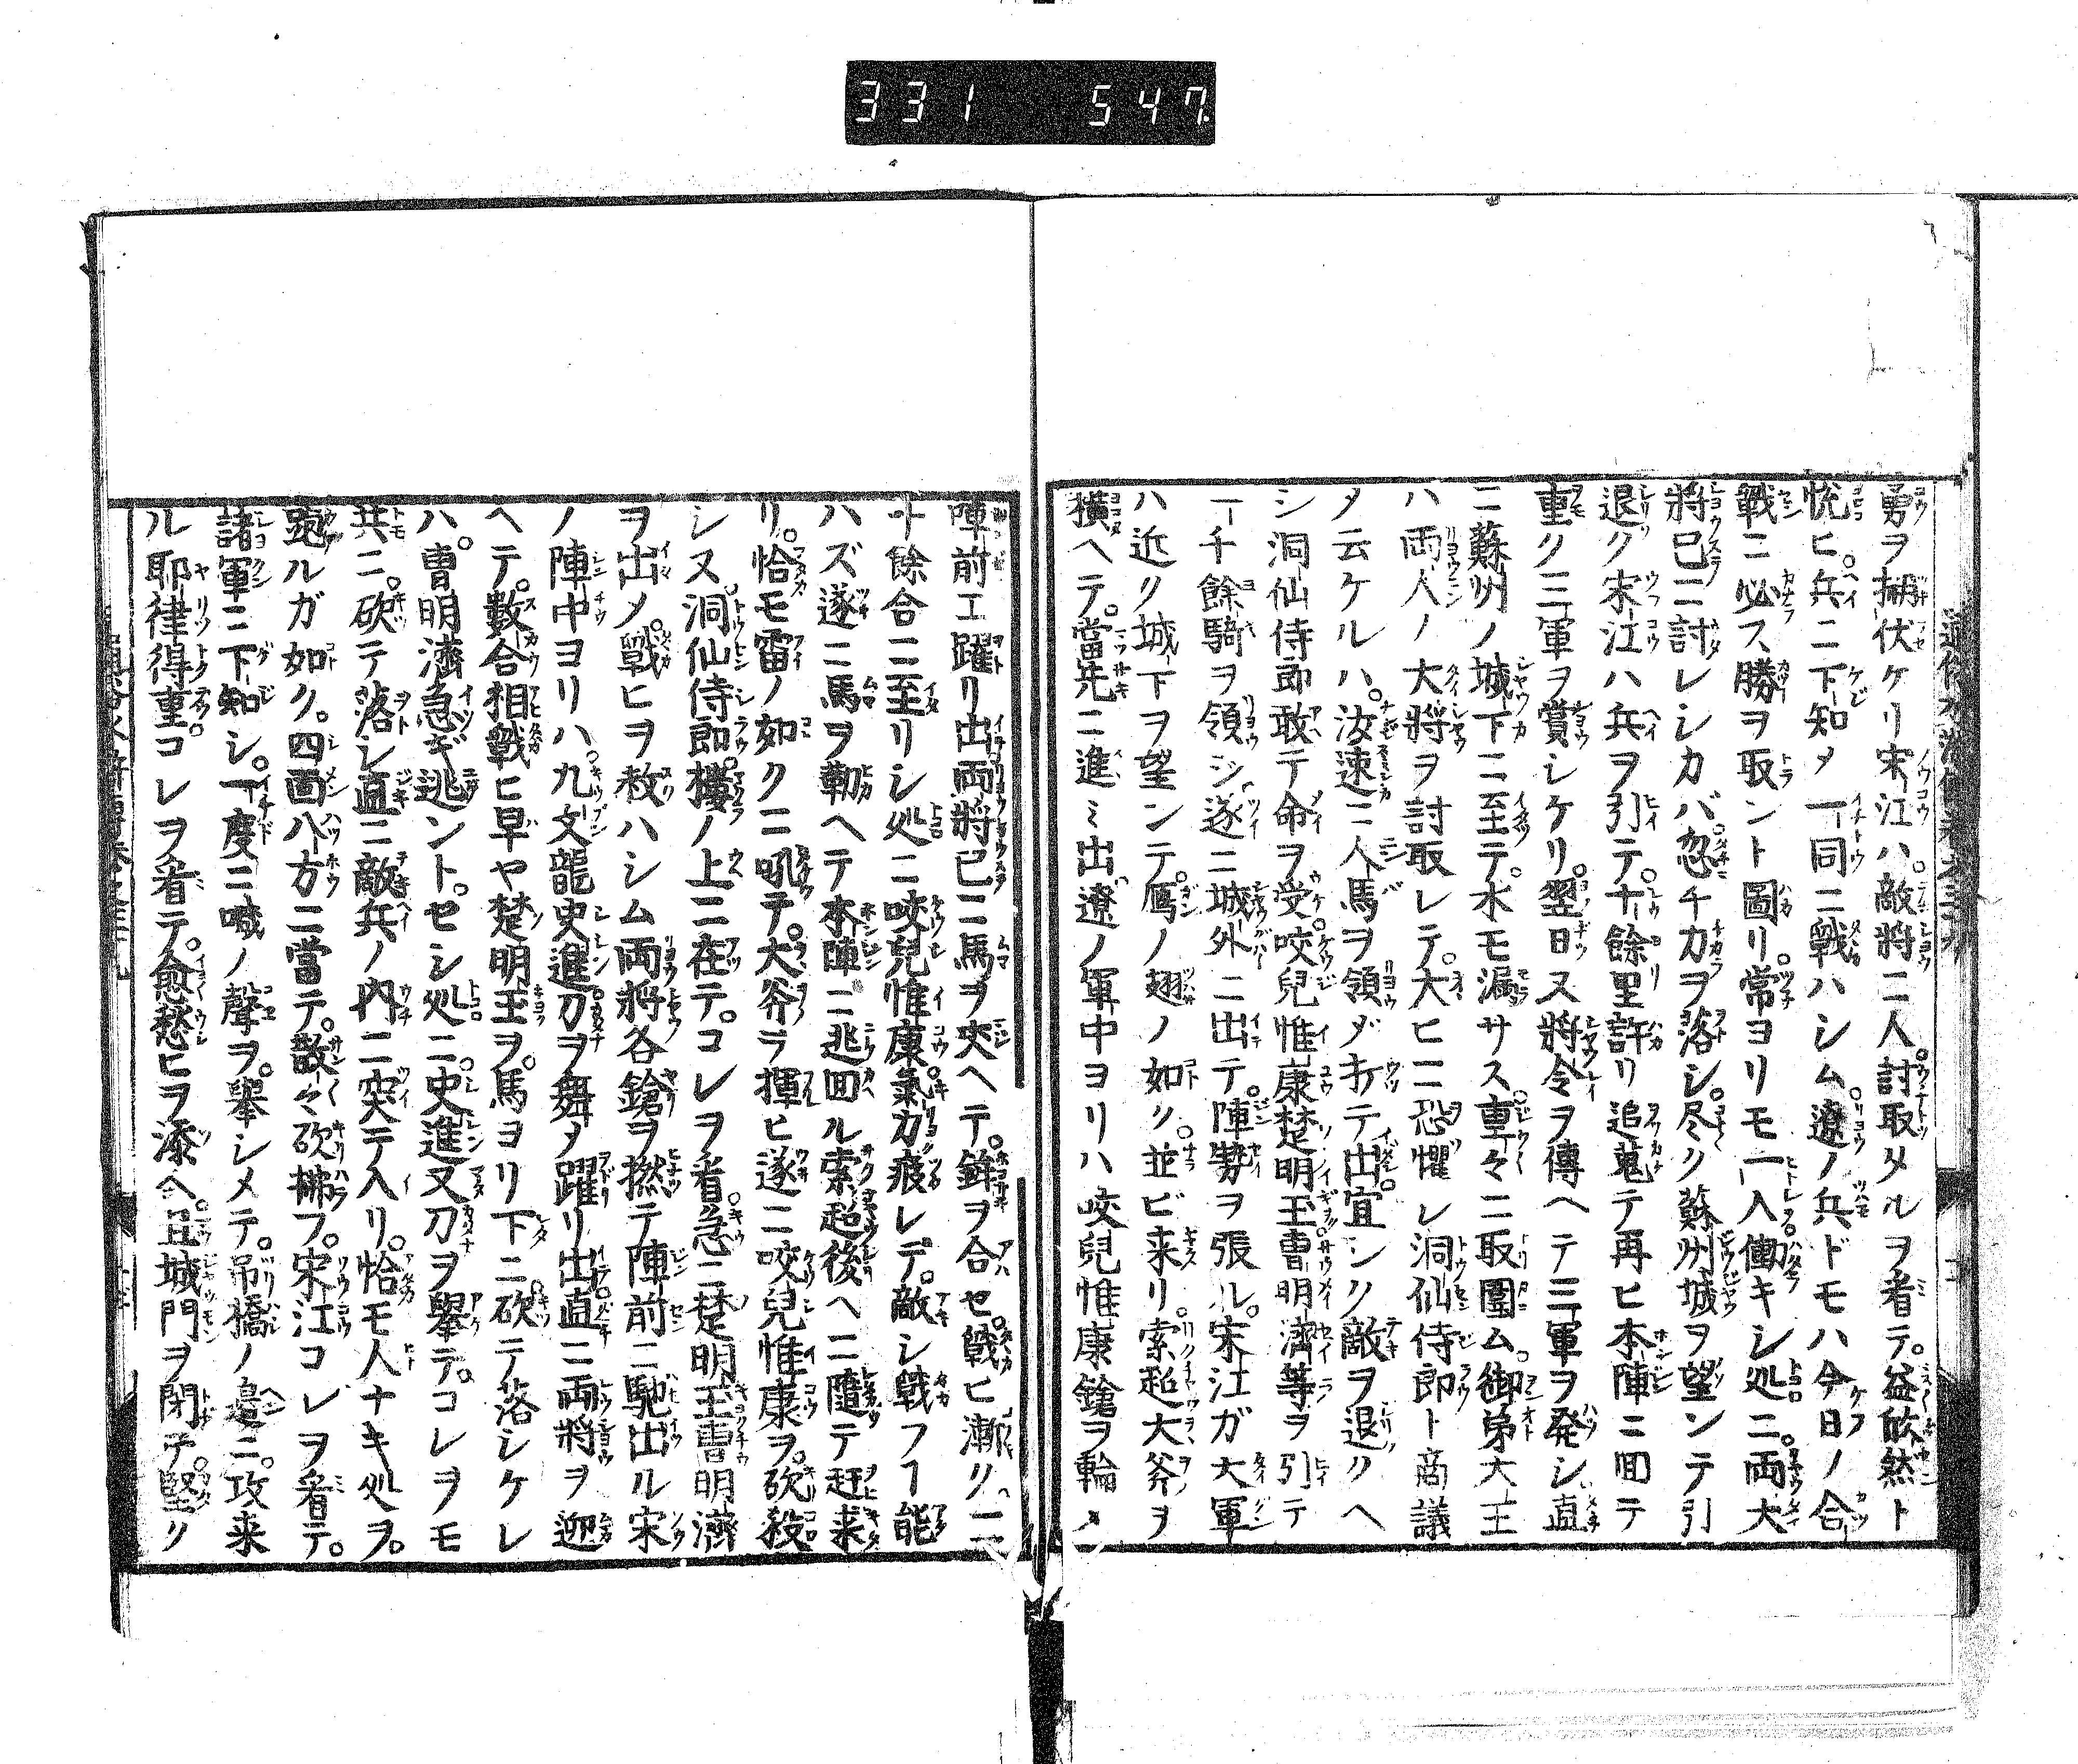 331 547
勇ヲ搠伏ケリ宋江ハ。敵將二人。討取タルヲ看テ。益欣然ト
悦ヒ。兵ニ下知メ一同ニ戰ハシム。遼ノ兵ドモハ今日ノ合
戰ニ必ス勝ヲ取ント圖リ。常ヨリモ一入働キシ処ニ。両大
將已ニ討レシカバ忽チカヲ落シ。尽ク蘇州城ヲ望ンテ引
退ク宋江ハ兵ヲ引テ。十餘里許リ追蒐テ再ヒ本陣ニ回テ
重ク三軍ヲ賞シケリ。翌日又將令ヲ傳ヘテ三軍ヲ発シ直
ニ蘇州ノ城下ニ至テ。水モ漏サス。重々ニ取圍ム。御弟大王
ハ両人ノ大將ヲ討取レテ。大ヒニ恐懼レ洞仙侍郎ト商議
メ云ケルハ。汝速ニ人馬ヲ領ダ打テ出宜シク敵ヲ退クヘ
シ洞仙侍郎敢テ命ヲ受。咬兒惟康楚明玉曹明濟等ヲ引テ
一千餘騎ヲ領シ。遂ニ城外ニ出テ。陣勢ヲ張ル。宋江ガ大軍
ハ近ク城下ヲ望ンテ。鴈ノ翅ノ如ク。並ビ来リ。索超大斧ヲ
横ヘテ。當先ニ進ミ出遼ノ軍中ヨリハ咬兒惟康鎗ヲ輪メ
陣前エ躍リ出両將已ニ馬ヲ交ヘテ。鉾ヲ合セ。戰ヒ漸ク二
十餘合ニ至リシ処ニ咬兒惟康。氣力疲レテ。敵シ戰フヿ能
ハズ遂ニ馬ヲ勒ヘテ本陣ニ逃回ル索超後ヘニ隨テ赶来
リ。恰モ雷ノ如クニ吼テ。大斧ヲ揮ヒ遂ニ咬兒惟康ヲ。砍殺
シヌ。洞仙侍郎。樓ノ上ニ在テ。コレヲ看。急ニ楚明玉曹明濟
ヲ出メ。戰ヒヲ救ハシム両將各鎗ヲ撚テ陣前ニ馳出ル宋
ノ陣中ヨリハ。九文龍史進。刀ヲ舞メ躍リ出。直ニ両將ヲ迎
ヘテ。數合相戰ヒ早ヤ楚明玉ヲ。馬ヨリ下ニ砍テ落シケレ
ハ。曹明濟急ギ逃ント。セシ処ニ。史進又刀ヲ舉テ。コレヲモ
共ニ。砍テ落シ直ニ敵兵ノ内ニ突テ入リ。恰モ人ナキ処ヲ。
跑ルガ如ク。四面八方ニ當テ。散々砍拂フ。宋江コレヲ看テ。
諸軍ニ下知シ。一度ニ喊ノ聲ヲ。舉シメテ。吊橋ノ邉ニ。攻来
ル耶律得重。コレヲ看テ。愈愁ヒヲ添ヘ。且城門ヲ閉チ。堅ク